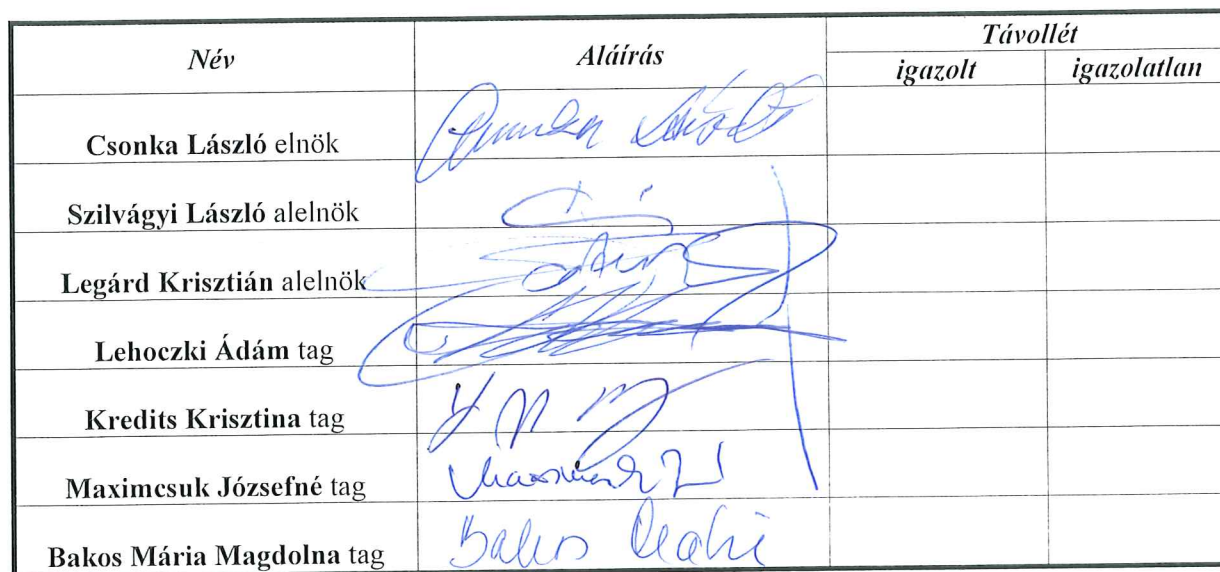 Név Aláírás Távollét
igazolt igazolatlan
Csonka László elnök
Szilvágyi László alelnök
Legárd Krisztián alelnök
Lehoczki Ádám tag
Kredits Krisztina tag
Maximcsuk Józsefné tag
Bakos Mária Magdolna tag Bakos